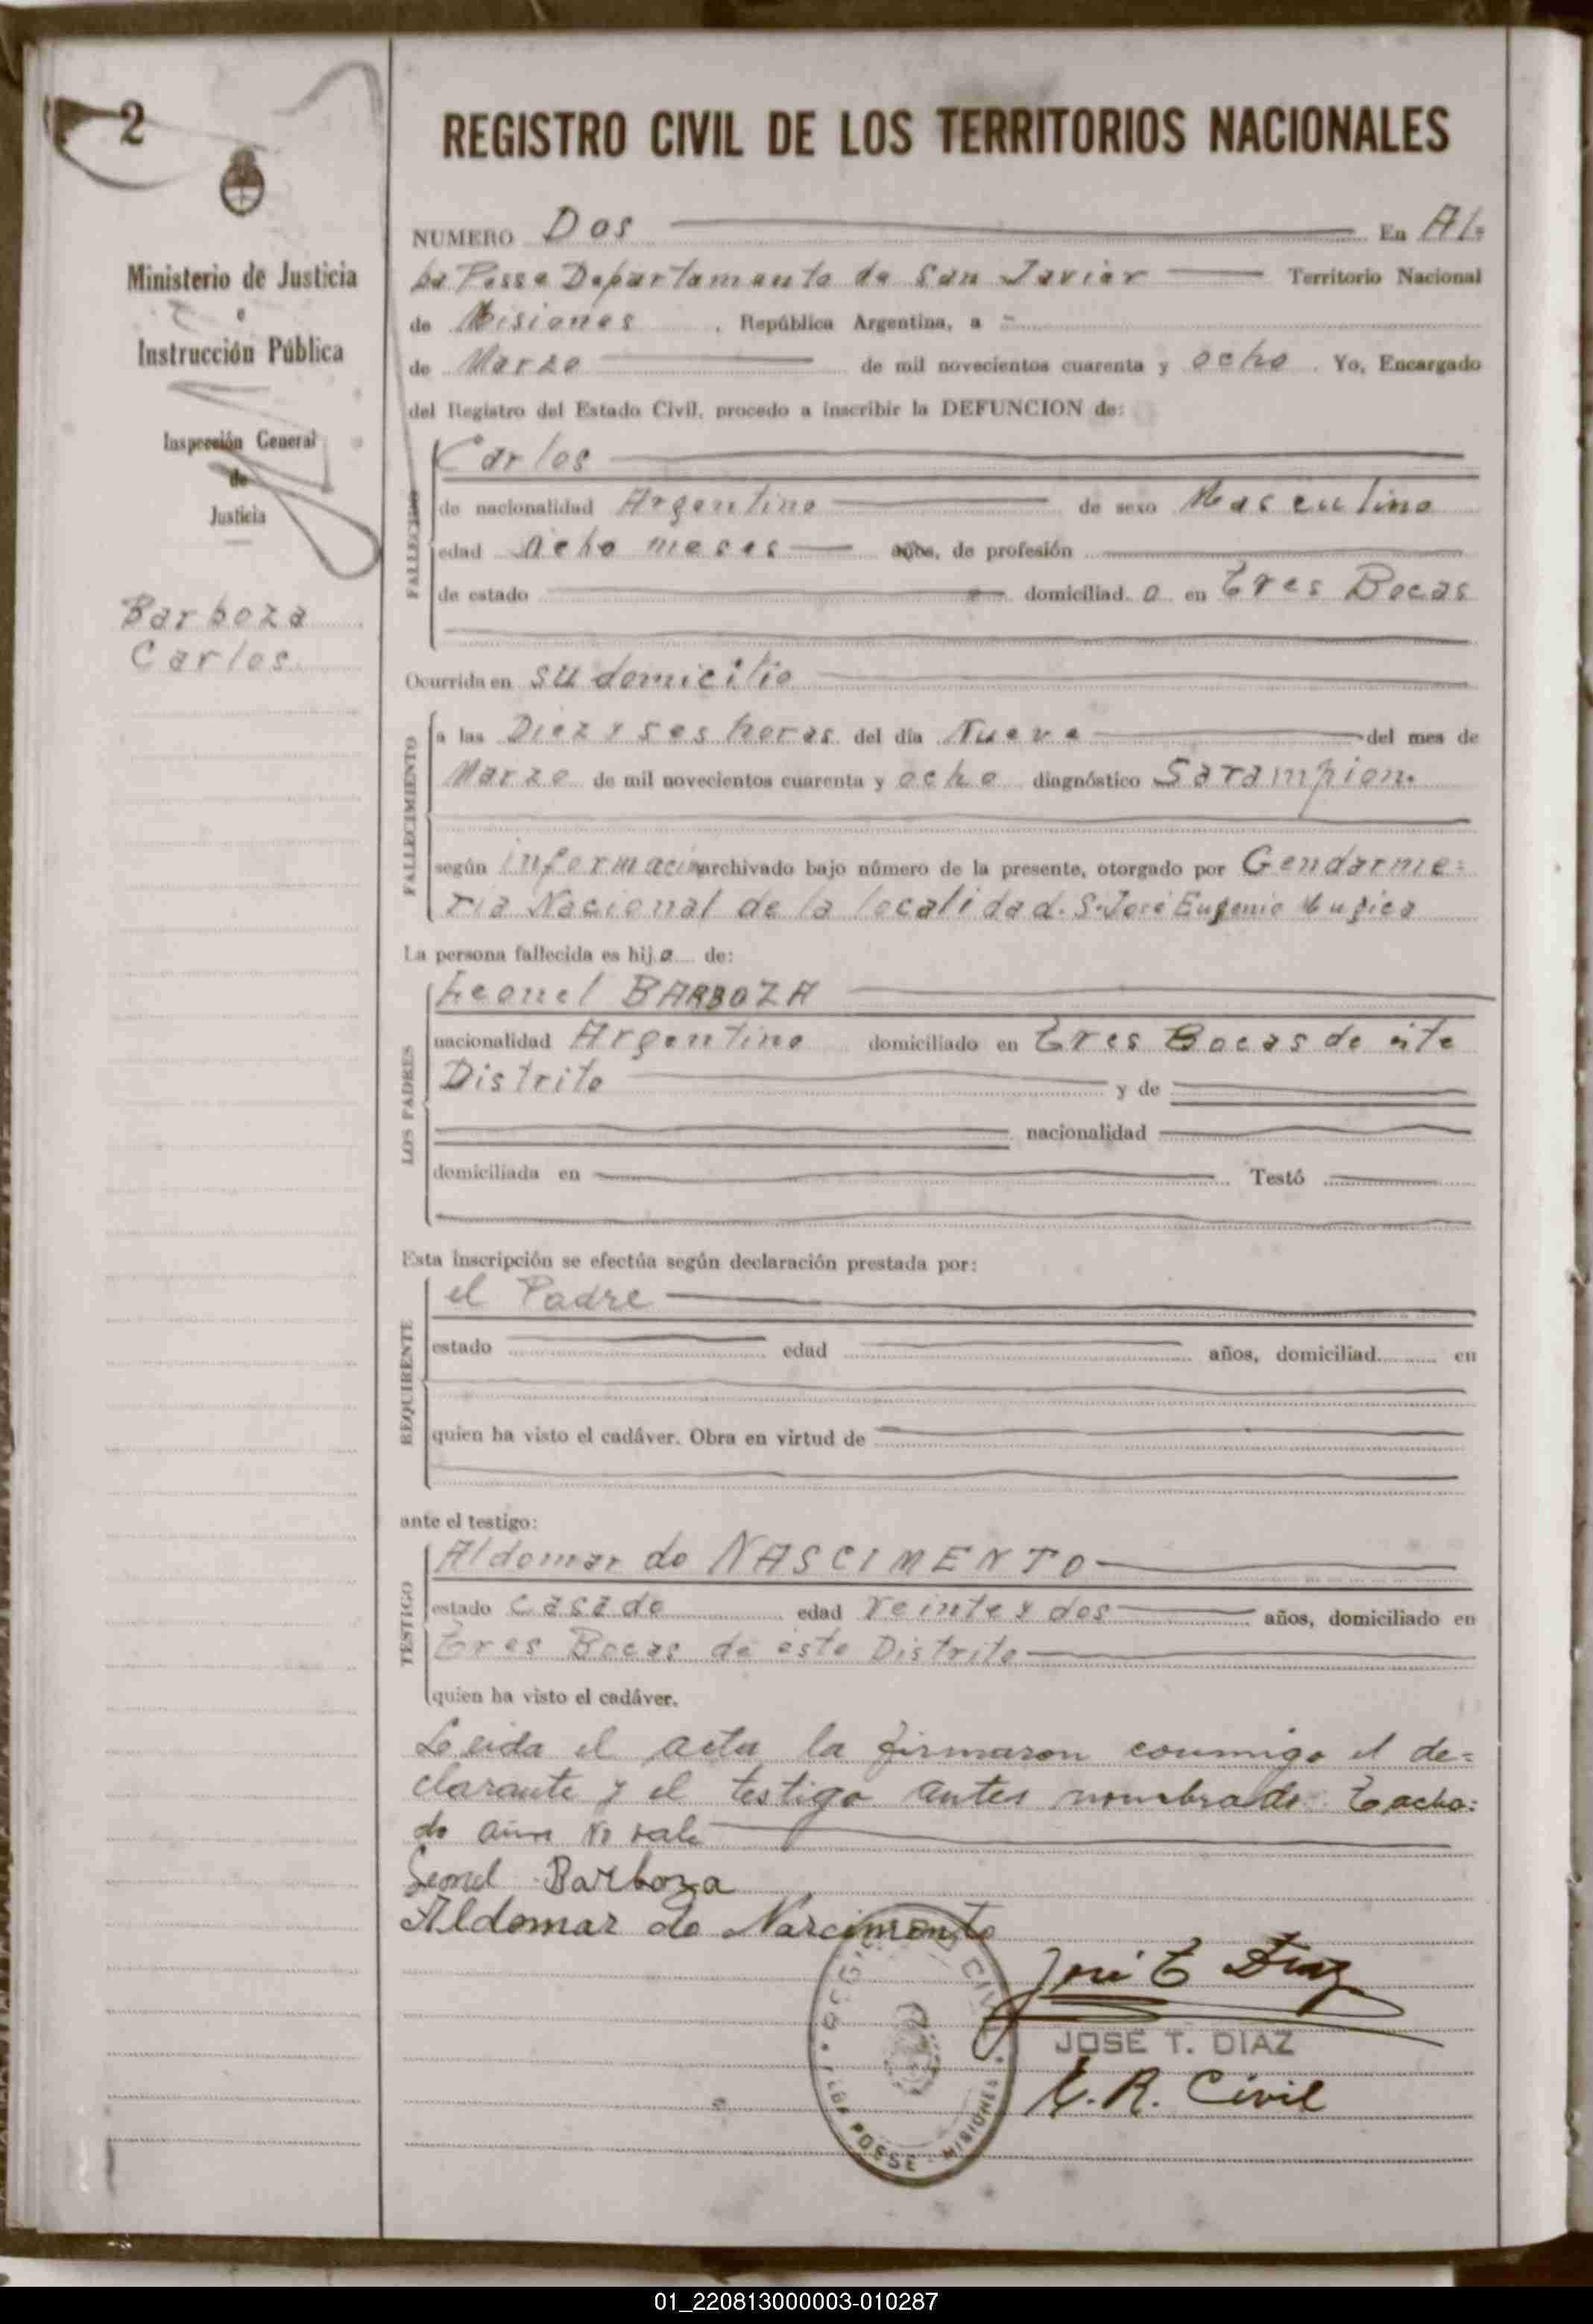 2
Ministerio de Justicia
e
Instrucción Pública
Inspección General
de
Justicia
Barboza
Carlos
REGISTRO CIVIL DE LOS TERRITORIOS NACIONALES
NUMERO Dos En Al=
ba Posse Departamento de San Javier Territorio Nacional
de Misiones, República Argentina, a
de Marzo de mil novecientos cuarenta y ocho. Yo, Encargado
del Registro del Estado Civil, procedo a inscribir la DEFUNCION de:
FALLECIDO
Carlos
de nacionalidad Argentino de sexo Masculino
edad ocho meses años, de profesión
de estado domiciliad o en Tres Bocas
Ocurrida en su domicilio
FALLECIMIENTO
a las Diez y ses horas del día Nueve del mes de
Marzo de mil novecientos cuarenta y ocho diagnóstico Sarampion.
según informacion archivado bajo número de la presente, otorgado por Gendarme=
ria Nacional de la localidad. S. José Eugenio Mugica
La persona fallecida es hij o de:
LOS PADRES
Leonel BARBOZA
nacionalidad Argentino domiciliado en Tres Bocas de este
Distrito y de
nacionalidad
domiciliada en Testó
Esta inscripción se efectúa según declaración prestada por:
REQUIRENTE
el Padre
estado edad años, domiciliad en
quien ha visto el cadáver. Obra en virtud de
ante el testigo:
TESTIGO
Aldomar do NASCIMENTO
estado casado edad veinte y dos años, domiciliado en
Tres Bocas de este Distrito
quien ha visto el cadáver.
Leida el acta la firmaron conmigo el de=
clarante y el testigo antes nombrado Tacha=
do años No vale
Leonel Barboza
Aldomar do Narcimento
José T Diaz
JOSE T. DIAZ
E. R. Civil
REGISTRO CIVIL
ALBA POSSE - MISIONES
01_220813000003-010287